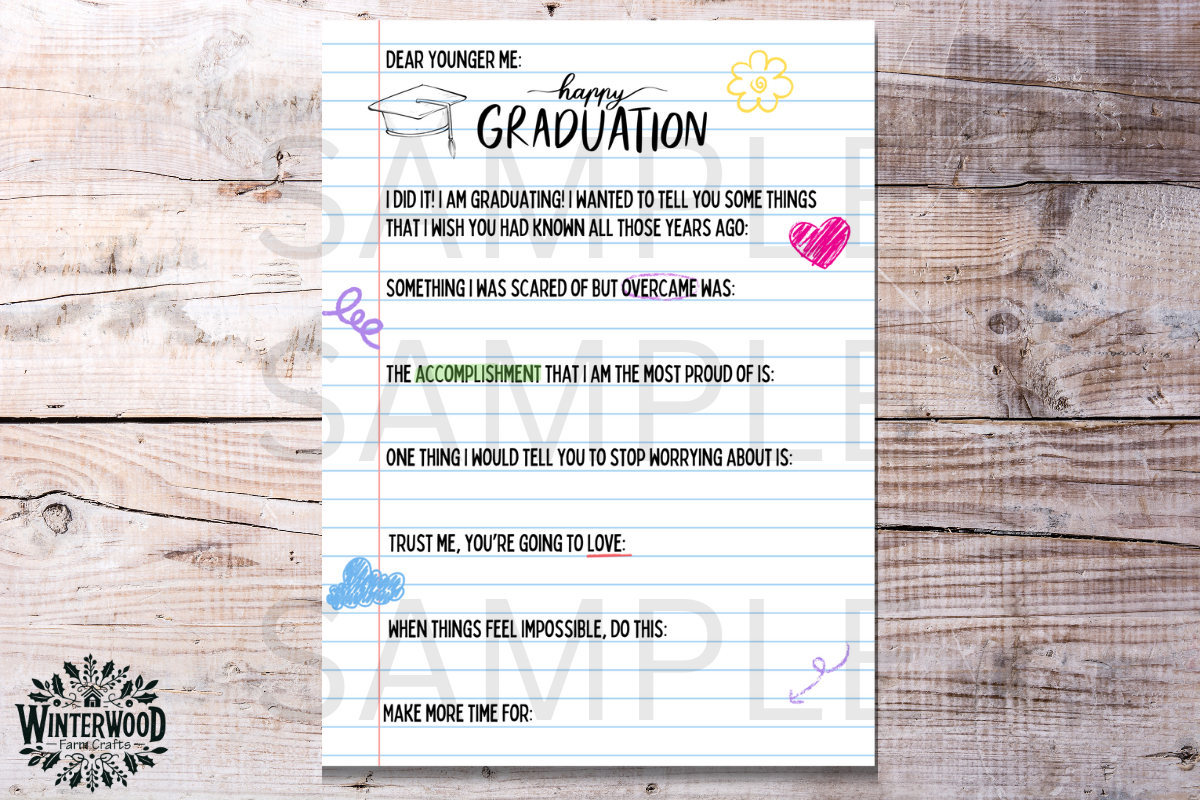 DEAR YOUNGER ME:
happy
GRADUATION
I DID IT! I AM GRADUATING! I WANTED TO TELL YOU SOME THINGS
THAT I WISH YOU HAD KNOWN ALL THOSE YEARS AGO:
SAMPLE
SOMETHING I WAS SCARED OF BUT OVERCAME WAS:
THE ACCOMPLISHMENT THAT I AM THE MOST PROUD OF IS:
SAMPLE
ONE THING I WOULD TELL YOU TO STOP WORRYING ABOUT IS:
TRUST ME, YOU'RE GOING TO LOVE:
WHEN THINGS FEEL IMPOSSIBLE, DO THIS:
SAMPLE
MAKE MORE TIME FOR:
WINTERWOOD
Farm Crafts